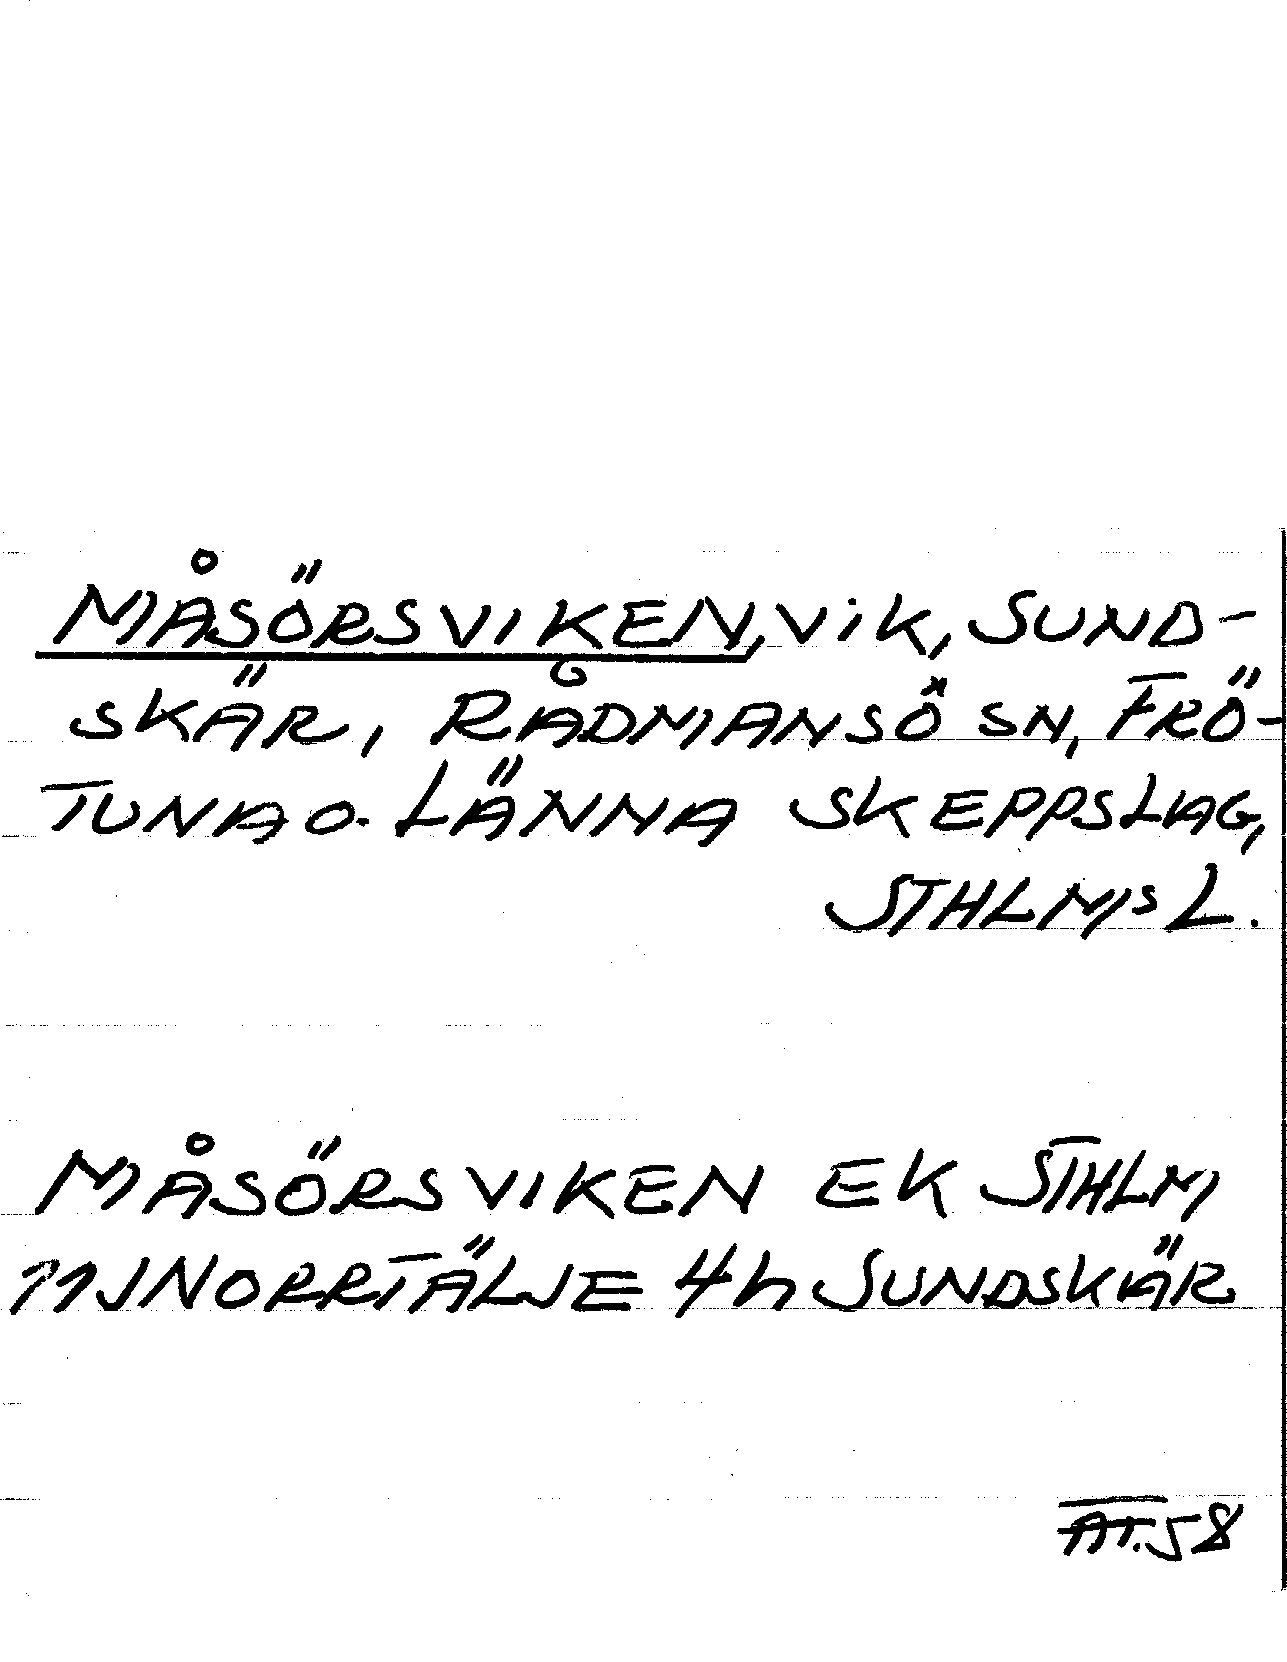 MÅSÖRSVIKEN, VIK, SUND-
SKÄR, RÅDMANSÖ SN, FRÖ-
TUNA O. LÄNNA SKEPPSLAG,
STHLMS L.
MÅSÖRSVIKEN EK STHLM
11J NORRTÄLJE 4h SUNDSKÄR
AT.58